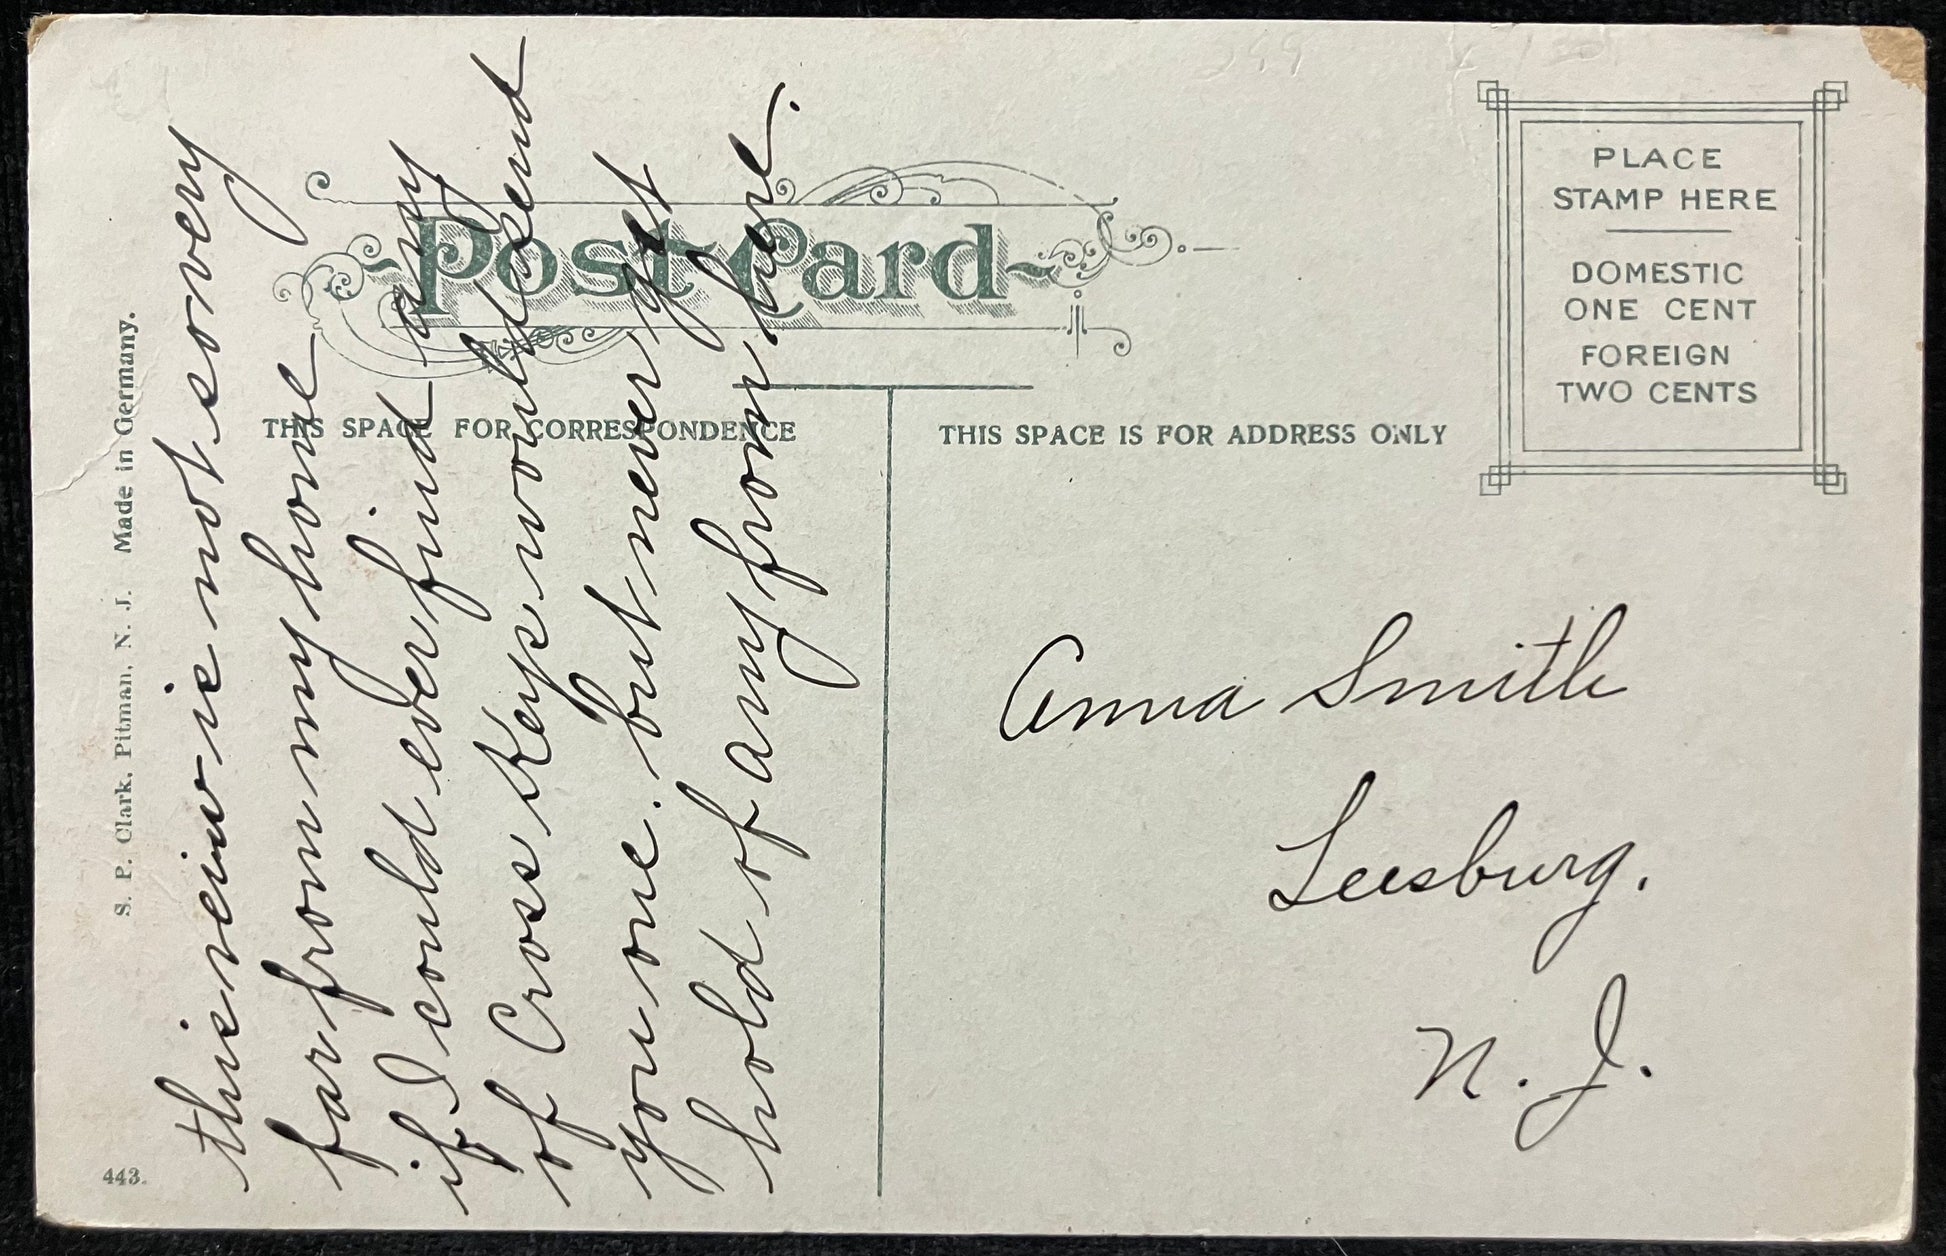 Post Card
THIS SPACE FOR CORRESPONDENCE
THIS SPACE IS FOR ADDRESS ONLY
PLACE
STAMP HERE
DOMESTIC
ONE CENT
FOREIGN
TWO CENTS
S. P. Clark, Pitman, N. J. Made in Germany.
443.
this veiw is not so very
far from my home
if I could ever find any
of Cross Keys would send
you one. but never get
hold of any from here.
Anna Smith
Leesburg.
N. J.